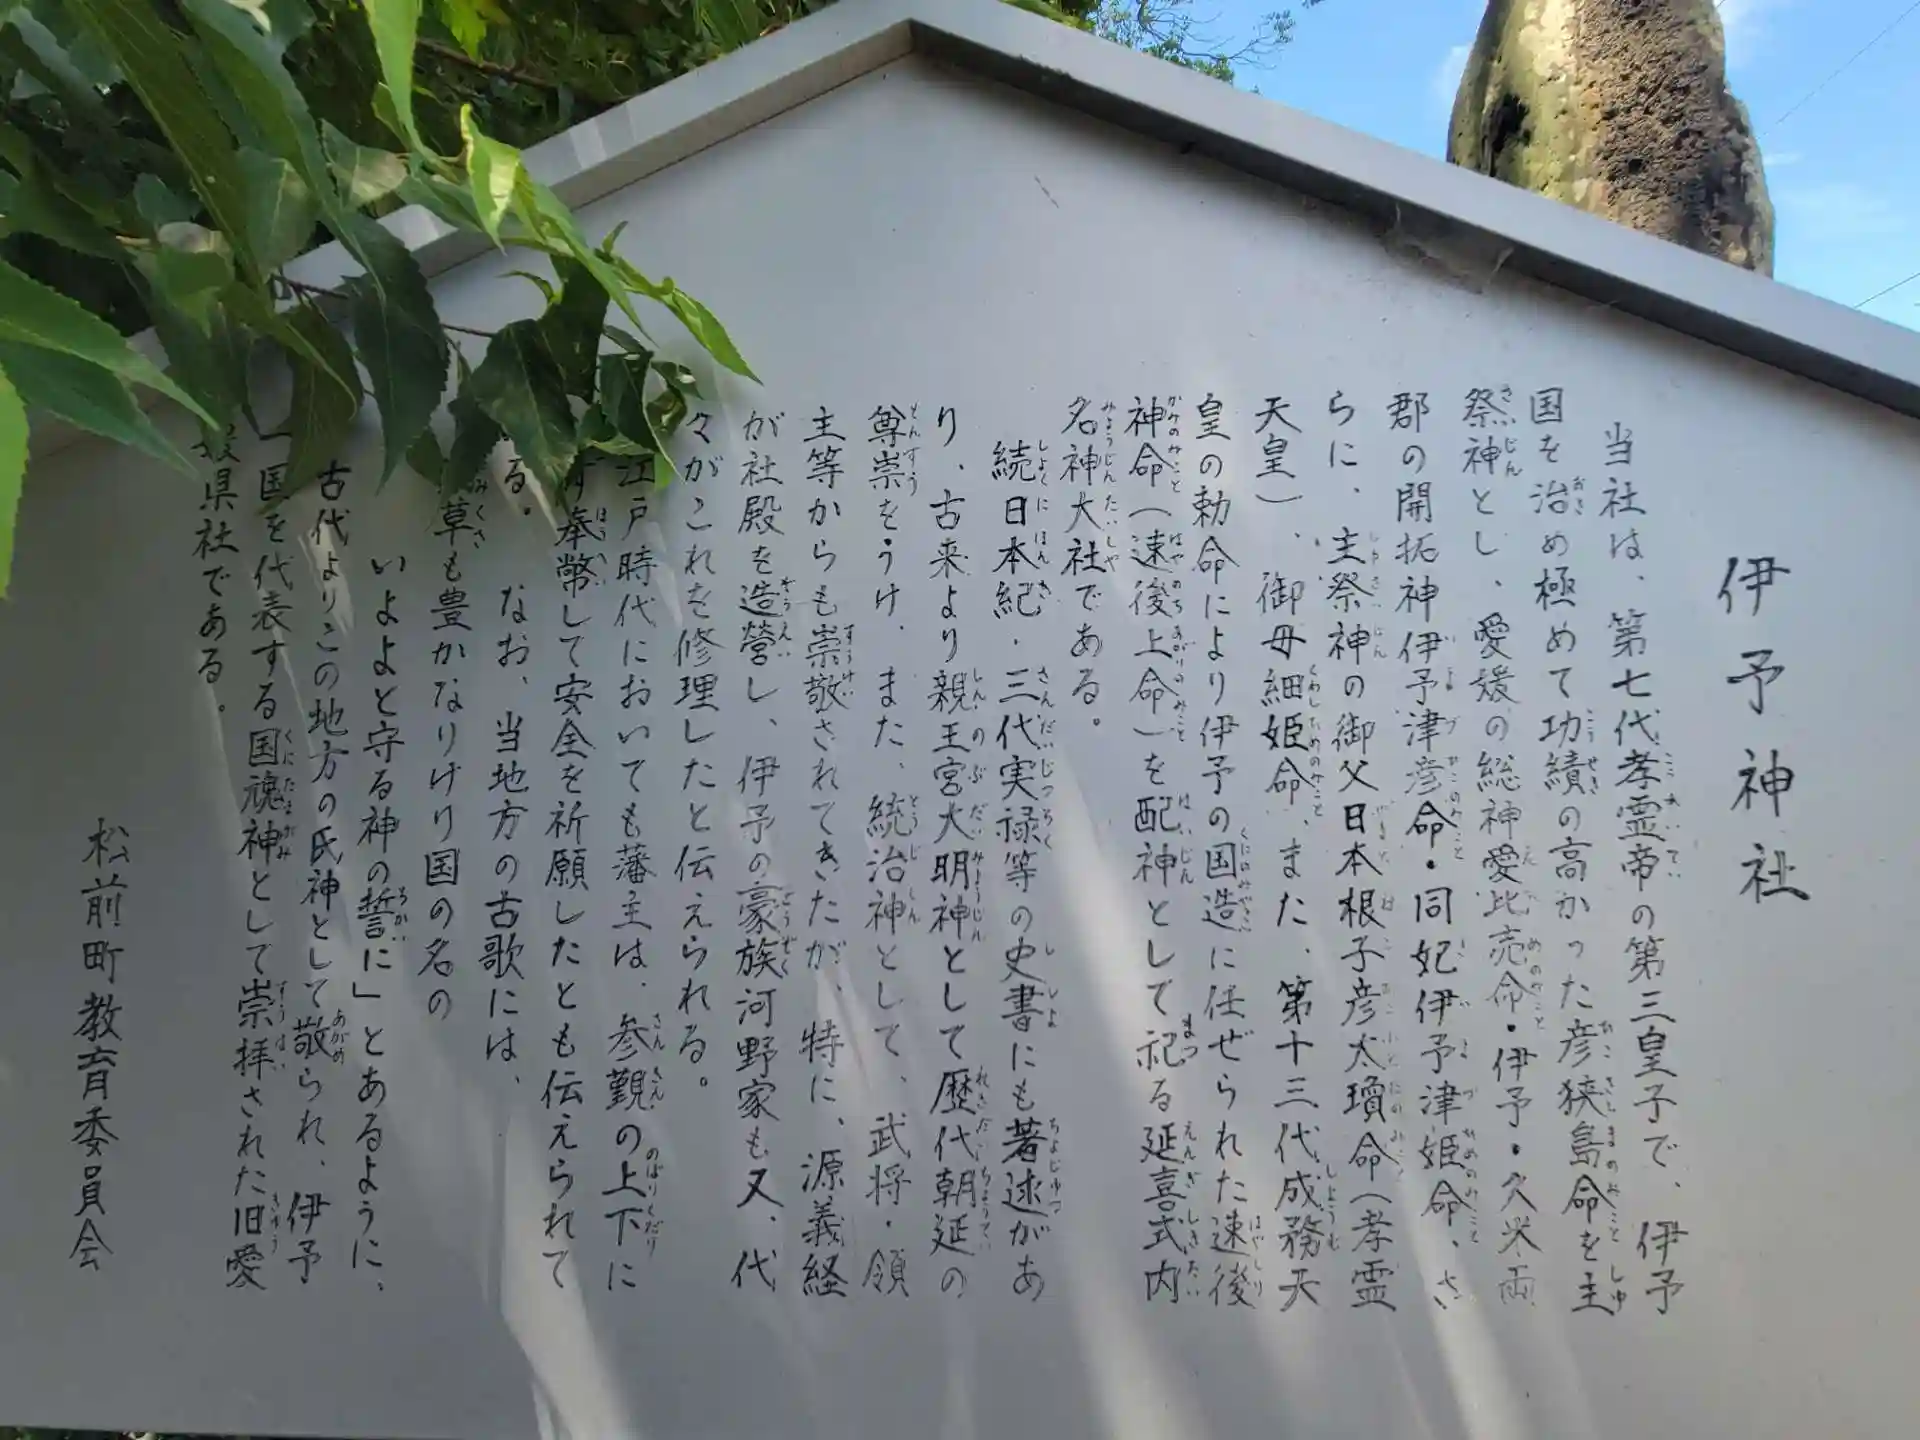 伊予神社
当社は、第七代孝霊帝の第三皇子で、伊予
国を治め極めて功績の高かった彦狭島命を主
祭神とし、愛媛の総神愛比売命・伊予・久米両
郡の開拓神伊予津彦命・同妃伊予津姫命、さ
らに、主祭神の御父日本根子彦太瓊命(孝霊
天皇)、御母細姫命、また、第十三代成務天
皇の勅命により伊予の国造に任ぜられた速後
神命(速後上命)を配神として祀る延喜式内
名神大社である。
続日本紀・三代実禄等の史書にも著述があ
り、古来より親王宮大明神として歴代朝廷の
尊崇をうけ、また、統治神として、武将・領
主等からも崇敬されてきたが、特に、源義経
が社殿を造営し、伊予の豪族河野家も又、代
々がこれを修理したと伝えられる。
江戸時代においても藩主は、参覲の上下に
奉幣して安全を祈願したとも伝えられて
る。
なお、当地方の古歌には、
草も豊かなりけり国の名の
いよよと守る神の誓に」とあるように、
古代よりこの地方の氏神として敬られ、伊予
一国を代表する国魂神として崇拝された旧愛
媛県社である。
松前町教育委員会